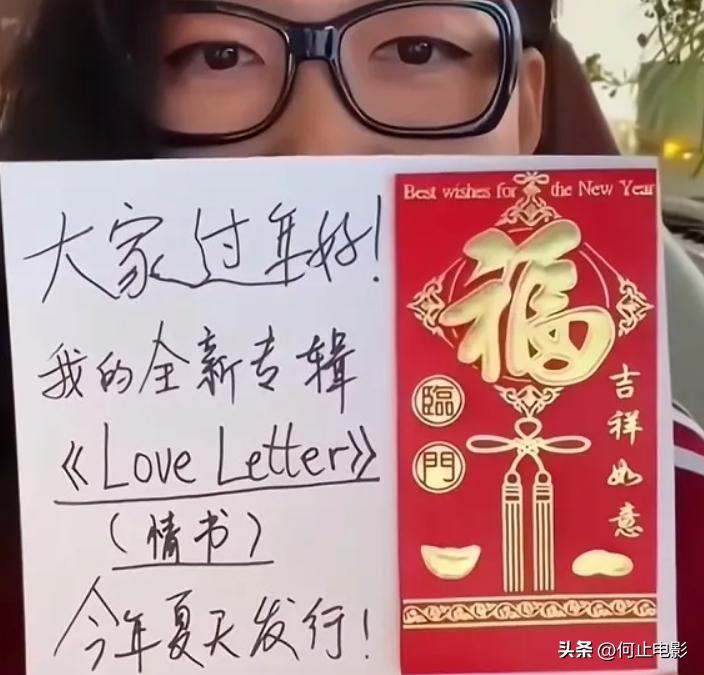 大家过年好!
我的全新专辑
《Love Letter》
(情书)
今年夏天发行!
Best wishes for the New Year
福
臨
門
吉祥如意
头条 @何止电影